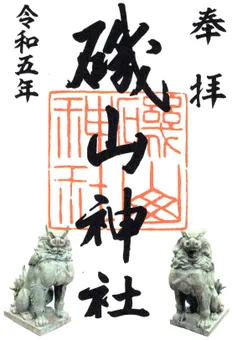 奉拝
磯山神社
令和五年
磯山神社